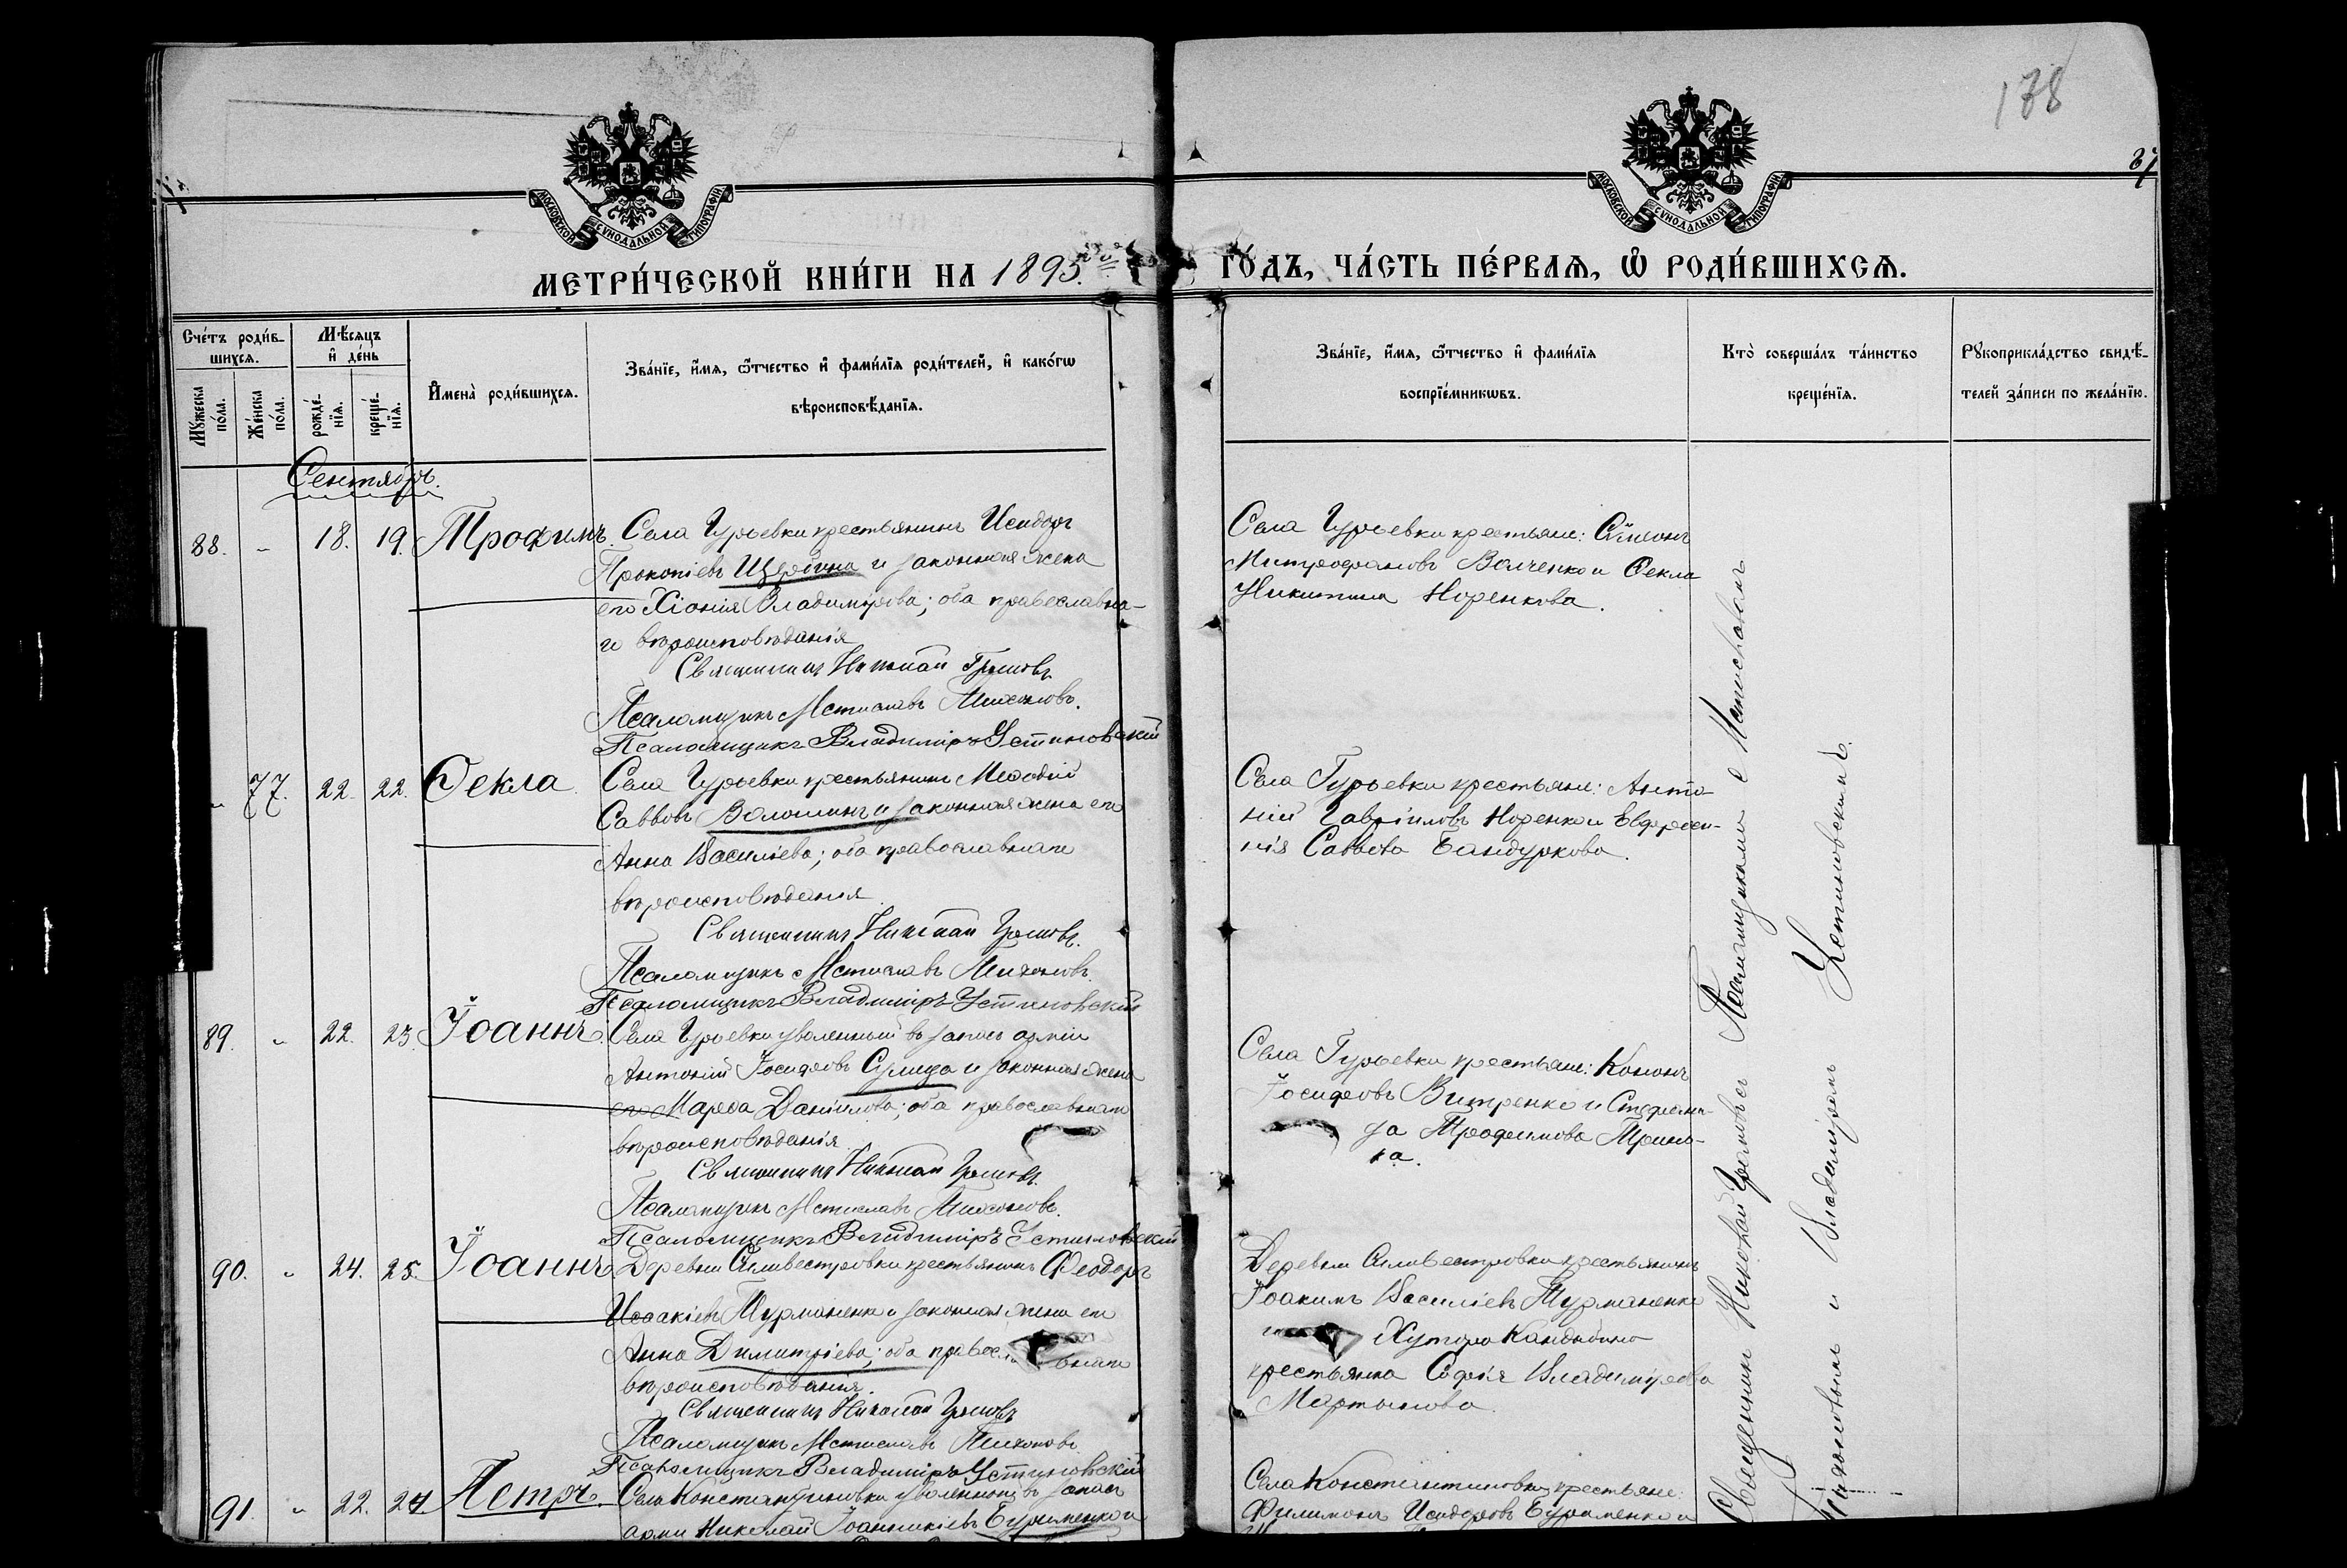 178
37
МОСКОВСКОЙ СѴНОДАЛЬНОЙ ТИПОГРАФІИ
МОСКОВСКОЙ СѴНОДАЛЬНОЙ ТИПОГРАФІИ
МЕТРИ́ЧЕСКОЙ КНИ́ГИ НА 1895
ГО́ДЪ, ЧА́СТЬ ПЕ́РВАѦ, Ѽ РОДИ́ВШИХСѦ.
Сче́тъ роди́в-
шихсѧ.
Мꙋ́жеска по́ла.
Же́нска по́ла.
Мѣ́сѧцъ
и҆ де́нь
рожде́-
нїѧ.
креще́-
нїѧ.
И҆мена̀ роди́вшихсѧ.
Зва́нїе, и҆́мѧ, ѻ҆́тчество и҆ фами́лїѧ роди́телей, и҆ како́гѡ
вѣроисповѣ́данїѧ.
Зва́нїе, и҆́мѧ, ѻ҆́тчество и҆ фами́лїѧ
воспрїе́мникѡвъ.
Кто̀ соверша́лъ та́инство
креще́нїѧ.
Рꙋкоприкла́дство свидѣ́-
телей за́писи по жела́нїю.
Сентябрь.
88. „ 18. 19. Трофимъ.
Села Гурьевки крестьянинъ Исидоръ
Прокопіевъ Щербина и законная жена
его Хіонія Владимірова; оба православна-
го вѣроисповѣданія
Священникъ Николай
Псаломщикъ Мстиславъ Тихоновъ.
Псаломщикъ Владиміръ Устиновскій
Села Гурьевки крестьяне: Симеонъ
Митрофановъ Волченко и Ѳекла
Никитина Норенкова.
„ 77. 22. 22. Ѳекла.
Села Гурьевки крестьянинъ Меѳодій
Саввовъ Волошинъ и законная жена его
Анна Васильева; оба православнаго
вѣроисповѣданія.
Священникъ Николай
Псаломщикъ Мстиславъ Тихоновъ.
Псаломщикъ Владиміръ Устиновскій
Села Гурьевки крестьяне: Анто-
ній Гавріиловъ Норенко и Евфроси-
нія Саввова Бандуркова.
89. „ 22. 23. Іоаннъ.
Села Гурьевки уволенный въ запасъ арміи
Антоній Іосифовъ Сулима и законная жена
его Марѳа Даніилова; оба православнаго
вѣроисповѣданія.
Священникъ Николай
Псаломщикъ Мстиславъ Тихоновъ.
Псаломщикъ Владиміръ Устиновскій
Села Гурьевки крестьяне: Кононъ
Іосифовъ Витренко и Стефани-
да Трофимова
90. „ 24. 25. Іоаннъ.
Деревни Сильвестровки крестьянинъ Ѳеодоръ
Исаакіевъ Турманенко и законная жена его
Анна Димитріева; оба православнаго
вѣроисповѣданія.
Священникъ Николай
Псаломщикъ Мстиславъ Тихоновъ.
Псаломщикъ Владиміръ Устиновскій
Деревни Сильвестровки крестьянинъ
Іоакимъ Василіевъ Турманенко
Хутора Кандыбина
крестьянка Софія Владимірова
Мартынова.
91. „ 22. 24. Петръ.
Села Константиновки уволенный въ запасъ
арміи Николай Іоанникіевъ Бурименко и
Села Константиновки крестьяне:
Филимонъ Исидоровъ Бурименко и
Священникъ Николай съ Псаломщиками Мстиславомъ
Тихоновымъ и Владиміромъ Устиновскимъ.